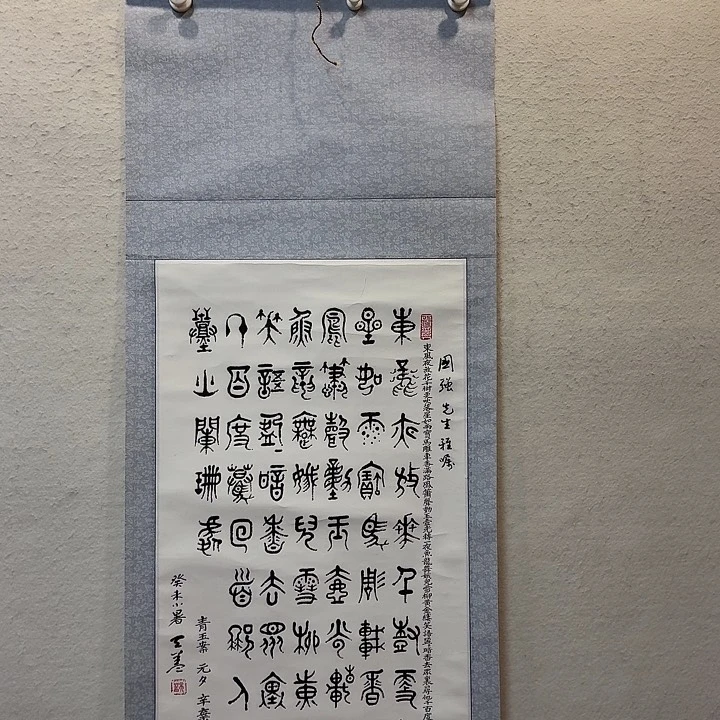 國強先生雅囑
東風夜放花千樹更吹落星如雨寶馬雕車香滿路鳳簫聲動玉壺光轉一夜魚龍舞蛾兒雪柳黃金縷笑語盈暗香去眾裏尋他千百度
東風夜放花千樹更
星如雨寶馬雕車香
鳳簫聲動玉壺光轉
魚龍舞蛾兒雪柳黃
笑語盈暗香去眾裏
千百度驀回首那人
燈火闌珊處
青玉案 元夕 辛棄
癸未小暑